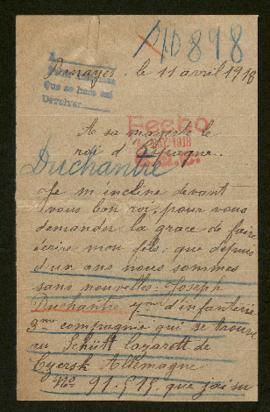 10898
A
que se hace
Devolver
le 11 avril 1918
A sa majesté le
Fecho
1918
roi d'Espagne.
Duchantre
Je m'incline devant
vous bon roi, pour vous
demander la grace de faire
écrire mon fils que depuis
d'un ans nous sommes
sans nouvelles. Joseph
Duchantre d'infanterie
3me compagnie qui se trouve
au lazarett de
Czersk Allemagne
No 91.515 que j'ai su